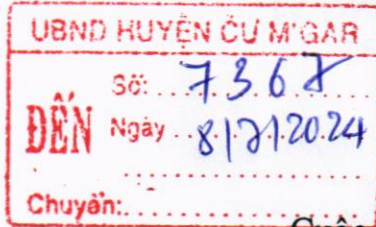 UBND HUYỆN CƯ M'GAR
ĐẾN
Số: 7367
Ngày 8/7/2024
Chuyển: